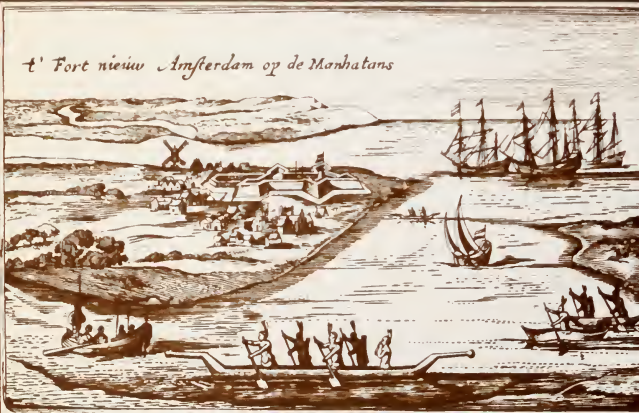 t' Fort nieuw Amsterdam op de Manhatans